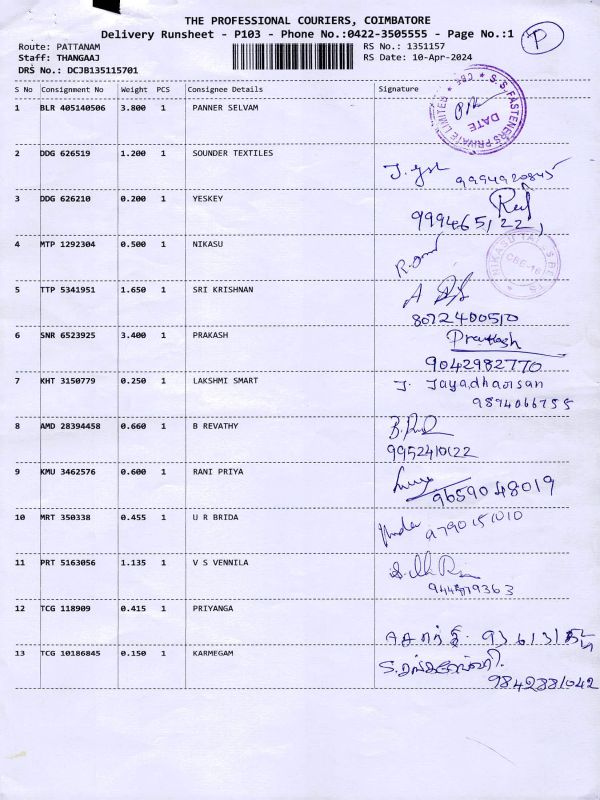 THE PROFESSIONAL COURIERS, COIMBATORE
Delivery Runsheet - P103 - Phone No.:0422-3505555 - Page No.:1 P
Route: PATTANAM RS No.: 1351157
Staff: THANGAAJ RS Date: 10-Apr-2024
DRS No.: DCJB135115701
S No Consignment No Weight PCS Consignee Details Signature
1 BLR 405140506 3.800 1 PANNER SELVAM
S.S. FASTENERS PRIVATE LIMITED * CBE * DATE
2 DDG 626519 1.200 1 SOUNDER TEXTILES
9994920845
3 DDG 626210 0.200 1 YESKEY
4 MTP 1292304 0.500 1 NIKASU
CBE-16
5 TTP 5341951 1.650 1 SRI KRISHNAN
8072400510
6 SNR 6523925 3.400 1 PRAKASH Prakash
9042982770
7 KHT 3150779 0.250 1 LAKSHMI SMART J. Jayadharsan
9894066755
8 AMD 28394458 0.660 1 B REVATHY
9952410122
9 KMU 3462576 0.600 1 RANI PRIYA
9659048019
10 MRT 350338 0.455 1 U R BRIDA
9790151010
11 PRT 5163056 1.135 1 V S VENNILA
12 TCG 118909 0.415 1 PRIYANGA
13 TCG 10186845 0.150 1 KARMEGAM
9842881042